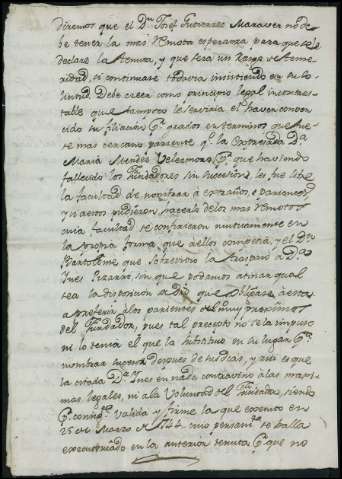 Diremos que el Dn Josef Gutierrez Maraver no de-
be tener la mas remota esperanza para que se le
declare la tenuta, y que será un rasgo de teme-
ridad, si continuase todavia insistiendo en su so-
licitud. Debe creer como principio legal incontres-
table que tampoco le serviria el haver conven-
cido su filiacion pr grados en terminos que fue-
se mas cercano pariente qe la expresada Da
Maria Mendes pr que haviendo
fallecido los fundadores sin succesion, les fue libre
la facultad de nombrar à estraños, ó parientes
y à estos pudieron hacerlo delos mas remotos
cuia facultad se confirieron mutuamente en
la propia forma, que à ellos competia, y el Dn
Bartolome que sobrevivio la traspasó à Da
Ines Pizarro, sin que podamos atinar qual
sea la disposicion que obligase à esta
à preferir à los parientes del muy proximos
del fundador, pues tal precepto no se la impuso
ni lo tenia el que la substitue en su lugar pa
nombrar succesor despues de sus dias, y asi es que
la citada Da Ines en nada contravino à las maxi-
mas legales, ni à la voluntad del fundador, siendo
pr consigte valida y firme la que executo en
25 de Marzo cuio pensamto se halla
executoriado en la anterior tenuta pr que no